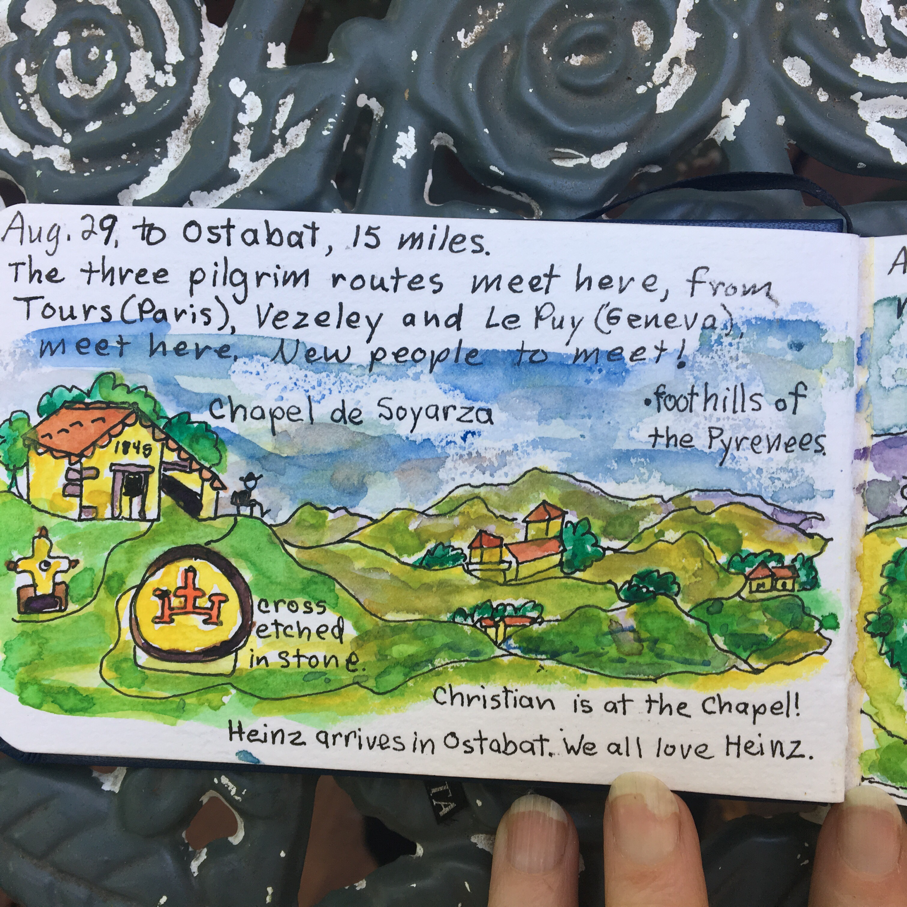 Aug. 29, to Ostabat, 15 miles.
The three pilgrim routes meet here, from
Tours (Paris), Vezeley and Le Puy (Geneva),
meet here. New people to meet!
Chapel de Soyarza
•foothills of
the Pyrenees.
1848
cross
etched
in stone.
Christian is at the Chapel!
Heinz arrives in Ostabat. We all love Heinz.
TA